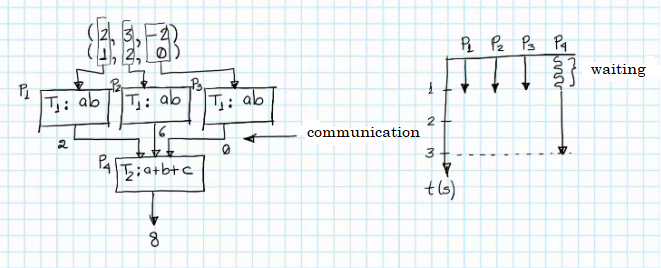 (2, 3, -2)
(1, 2, 0)
P1 T1: ab
P2 T1: ab
P3 T1: ab
2 6 0
communication
P4 T2: a+b+c
8
P1 P2 P3 P4
waiting
1
2
3
t(s)